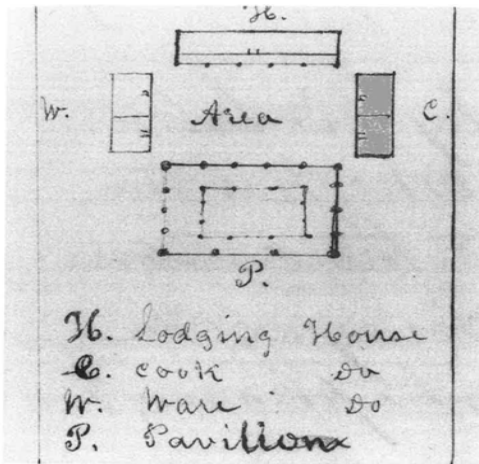 H.
W. Area C.
P.
H. Lodging House
C. cook Do
W. Ware Do
P. Pavilion